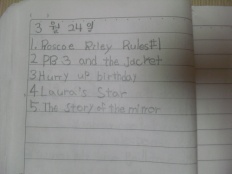 3 월 24 일
1. Roscoe Riley Rules #1
2 PB 3 and the Jacket
3 Hurry up birthday
4 Laura's Star
5 The Story of the mirror